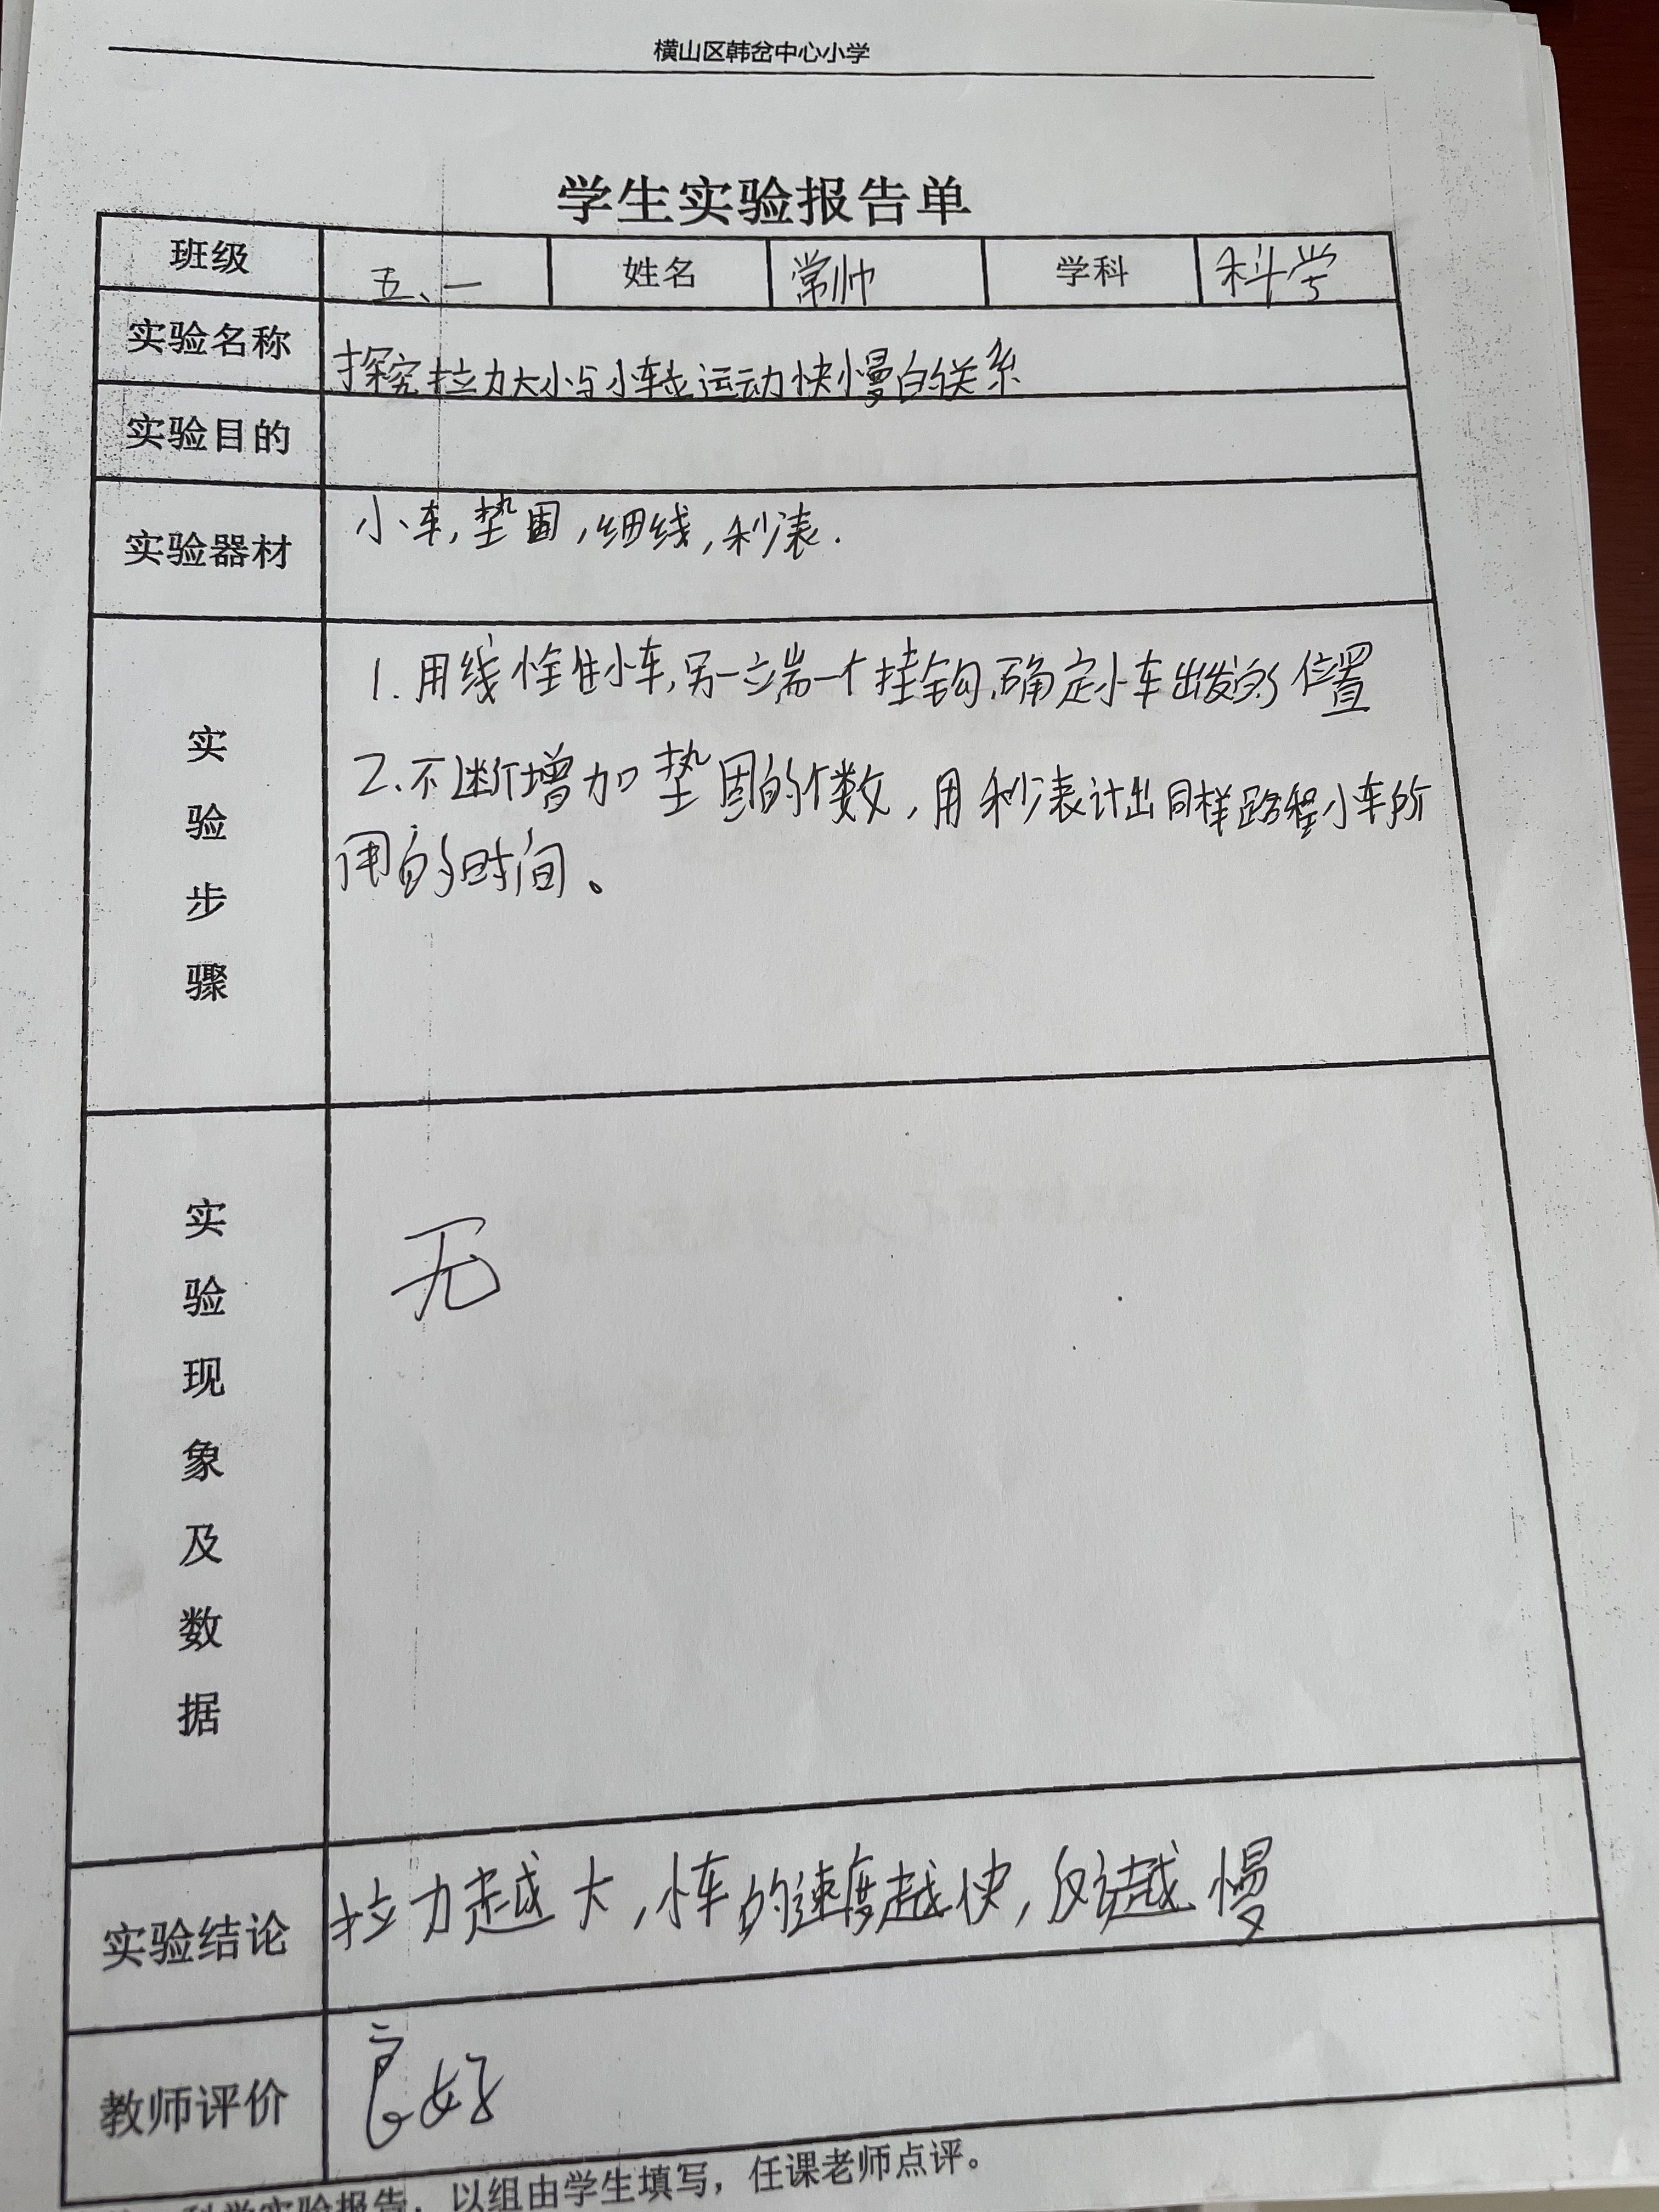 横山区韩岔中心小学
学生实验报告单
班级 五、一 姓名 常帅 学科 科学
实验名称 探究拉力大小与小车运动快慢的关系
实验目的
实验器材 小车,垫圈,细线,秒表.
实验步骤
1.用线拴住小车,另一端一个挂钩,确定小车出发的位置
2.不断增加垫圈的个数,用秒表计出同样路程小车所
用的时间。
实验现象及数据
无
实验结论 拉力越大,小车的速度越快,反之越慢
教师评价 良好
科学实验报告,以组由学生填写,任课老师点评。